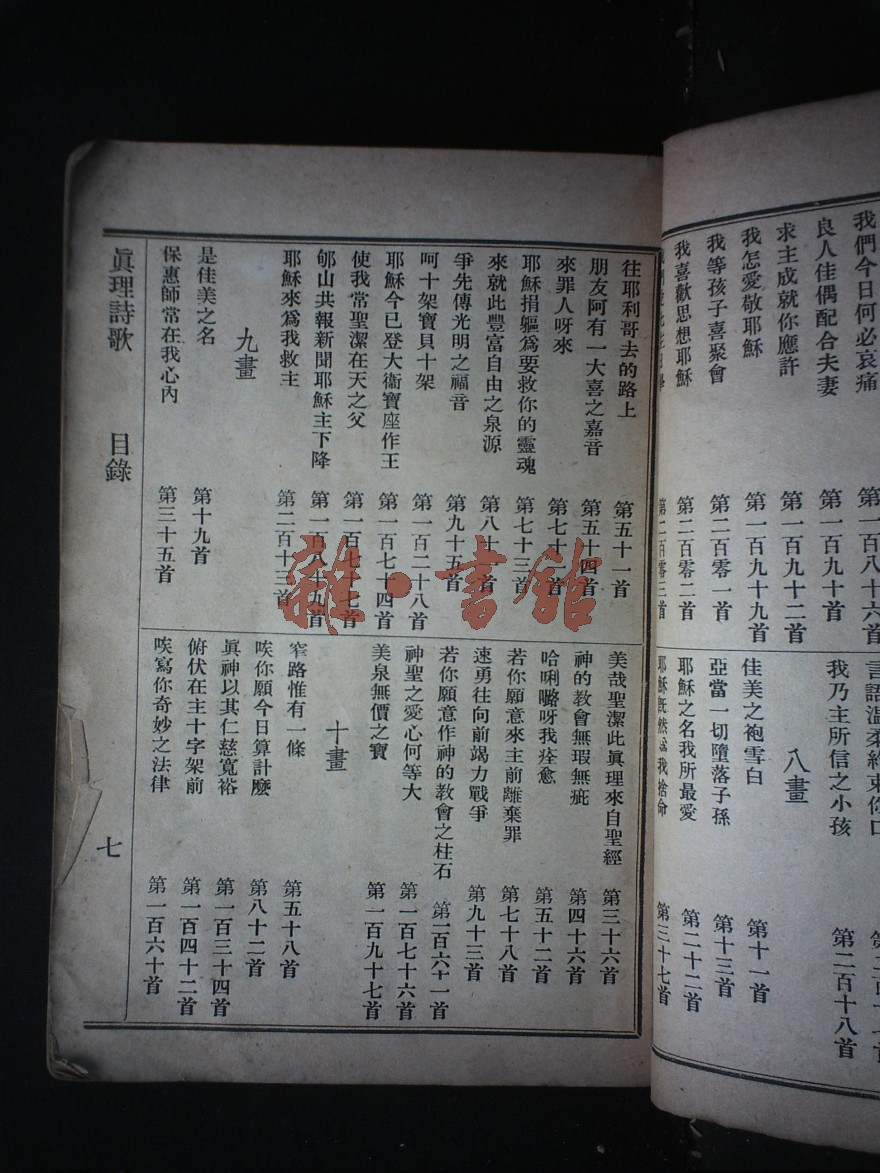 我們今日何必哀痛 第一百八十六首
良人佳偶配合夫妻 第一百九十首
求主成就你應許 第一百九十二首
我怎愛敬耶穌 第一百九十九首
我等孩子喜聚會 第二百零一首
我喜歡思想耶穌 第二百零二首
第二百零三首
言語溫柔約束你口
我乃主所信之小孩 第二百十八首
八畫
佳美之袍雪白 第十一首
亞當一切墮落子孫 第十三首
耶穌之名我所最愛 第二十二首
耶穌既然為我捨命 第三十七首
往耶利哥去的路上 第五十一首
朋友阿有一大喜之嘉音 第五十四首
來罪人呀來 第七十首
耶穌捐軀爲要救你的靈魂 第七十三首
來就此豐富自由之泉源 第八十首
爭先傳光明之福音 第九十五首
呵十架寶貝十架 第一百二十八首
耶穌今已登大衞寶座作王 第一百七十四首
使我常聖潔在天之父 第一百七十七首
郇山共報新聞耶穌主下降 第一百八十九首
耶穌來爲我救主 第二百十三首
九畫
是佳美之名 第十九首
保惠師常在我心內 第三十五首
美哉聖潔此眞理來自聖經 第三十六首
神的教會無瑕無疵 第四十六首
哈唎嚕呀我痊愈 第五十二首
若你願意來主前離棄罪 第七十八首
速勇往向前竭力戰爭 第九十三首
若你願意作神的教會之柱石 第一百六十一首
神聖之愛心何等大 第一百七十六首
美泉無價之寶 第一百九十七首
十畫
窄路惟有一條 第五十八首
唉你願今日算計麽 第八十二首
眞神以其仁慈寬裕 第一百三十四首
俯伏在主十字架前 第一百四十二首
唉寫你奇妙之法律 第一百六十首
眞理詩歌 目錄 七
雜·書館